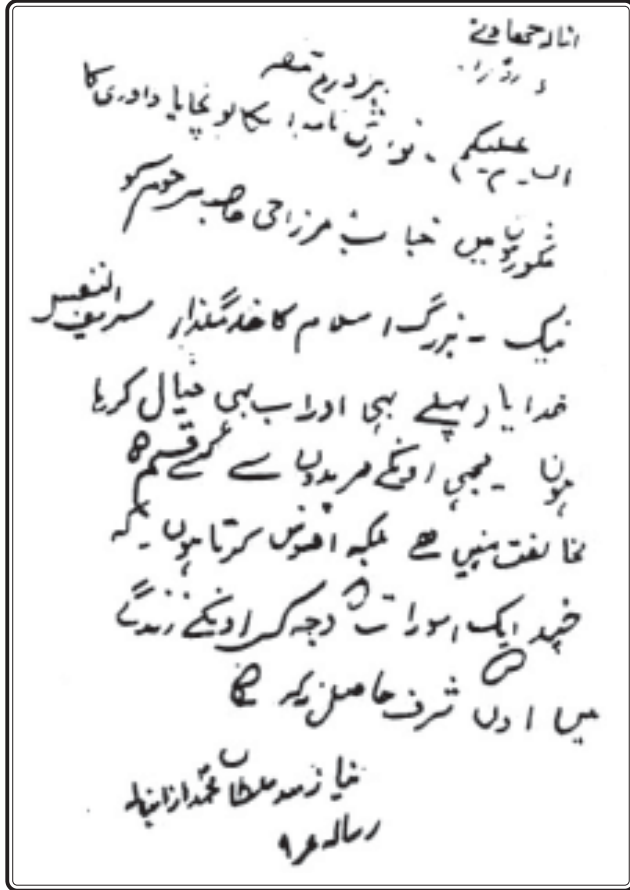 انبالہ چھاؤنی
برادرم
السلام علیکم - نوازش نامہ آپکا پہونچا یاد آوری کا
مشکور ہوں میں جناب مرزا جی صاحب مرحوم کو
نیک - بزرگ اسلام کا خدمتگذار شریف النفس
خدا یاد پہلے بھی اور اب بھی خیال کر رہا
ہوں - مجھے اونکے مریدوں سے کسی قسم کی
مخالفت نہیں ہے بلکہ افسوس کرتا ہوں کہ
چند ایک امورات کی وجہ سے اونکی زندگی
میں اون سے شرف حاصل نہ کر سکا
نیازمند سلطان محمد از انبالہ
رسالہ نمبر ۹